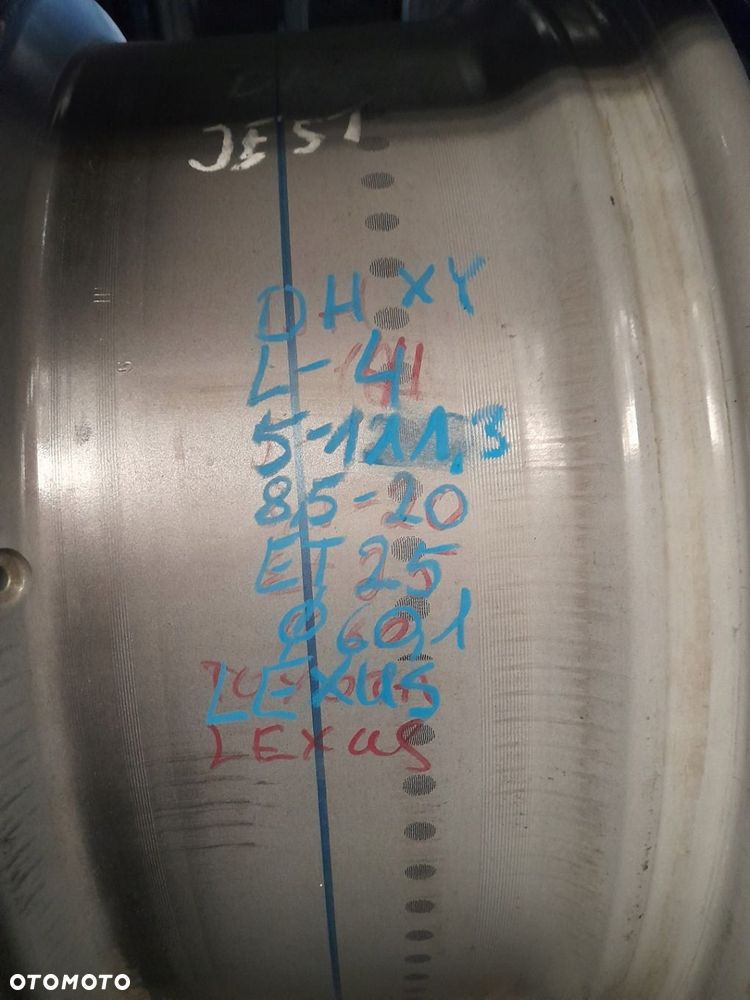 JEST
DHXY
L-4
5-121,3
8,5-20
ET 25
Ø 60,1
LEXUS
LEXUS
OTOMOTO